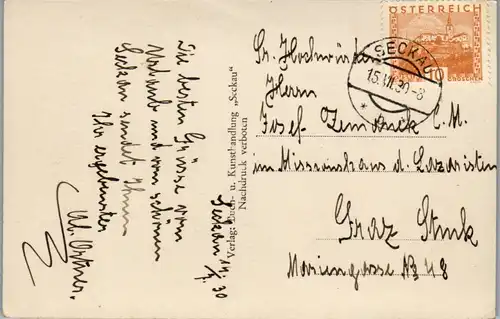 Die besten Grüsse vom
Urlaub und vom schönen
Seckau sendet Ihnen
Ihr ergebenster
Seckau 14. 30
Verlag: Buch- u. Kunsthandlung „Seckau"
Nachdruck verboten
ÖSTERREICH
10
SECKAU
Sr. Hochwürden
Herrn
Josef C. M.
im Missionshaus d. Lazaristen
Graz Stmk
Mariengasse № 48